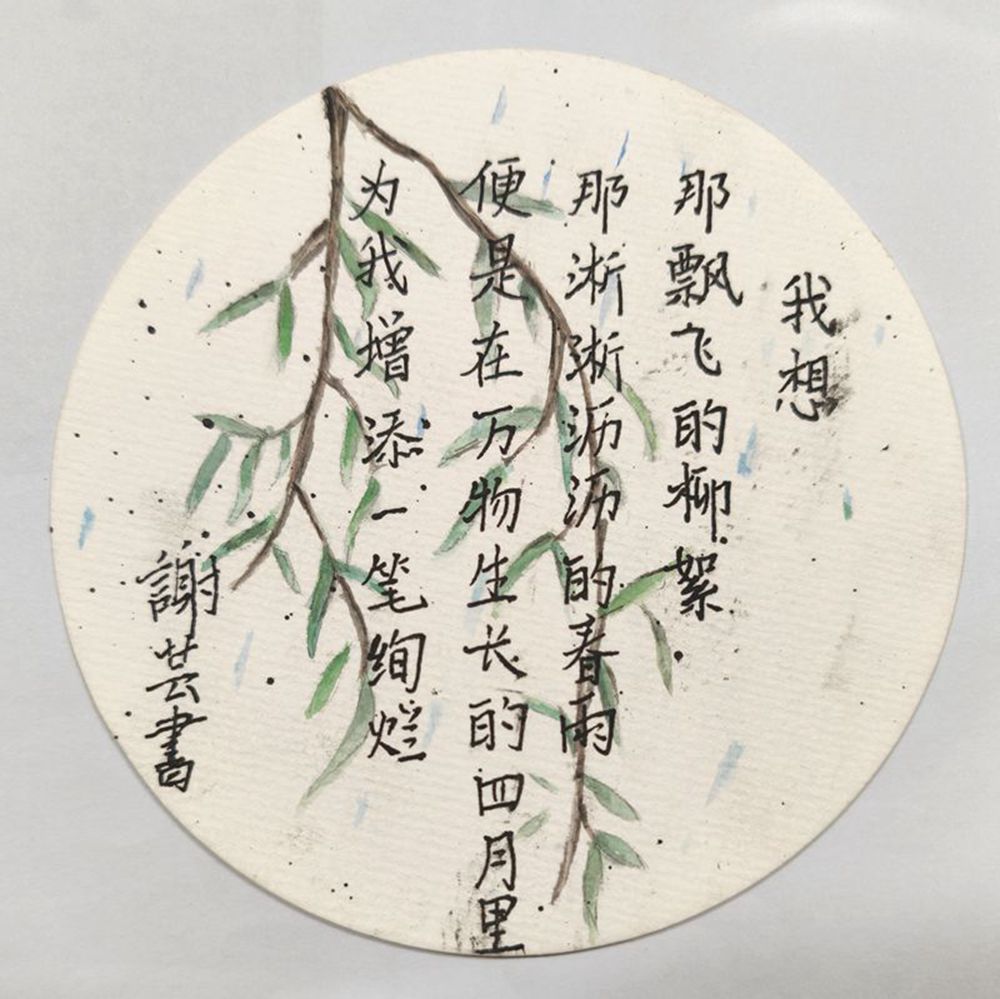 我想
那飘飞的柳絮
那淅淅沥沥的春雨
便是在万物生长的四月里
为我增添一笔绚烂
謝芸書